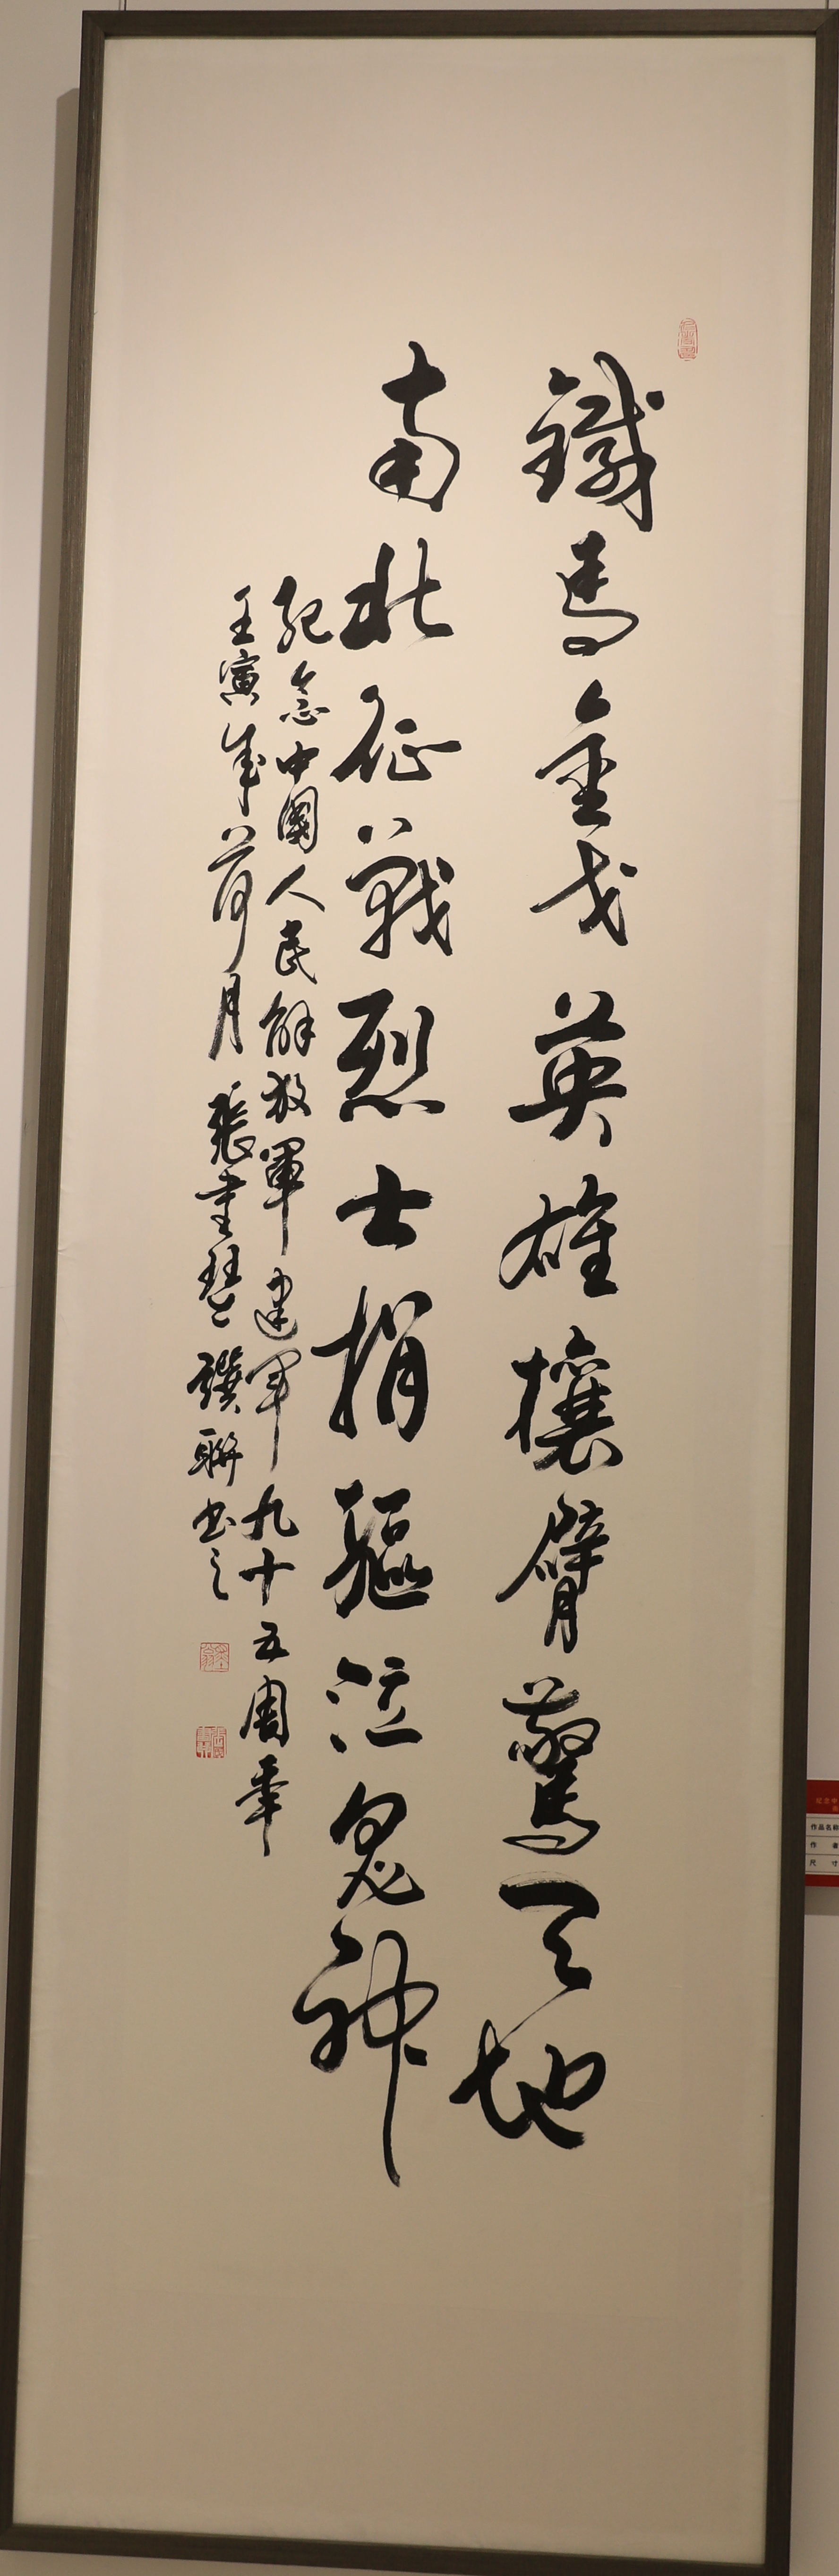 鐵馬金戈英雄攘臂驚天地
南北征戰烈士捐軀泣鬼神
紀念中國人民解放軍建軍九十五周年
壬寅年荷月張書琴撰聯書之
纪念中
作品名称
作 者
尺 寸